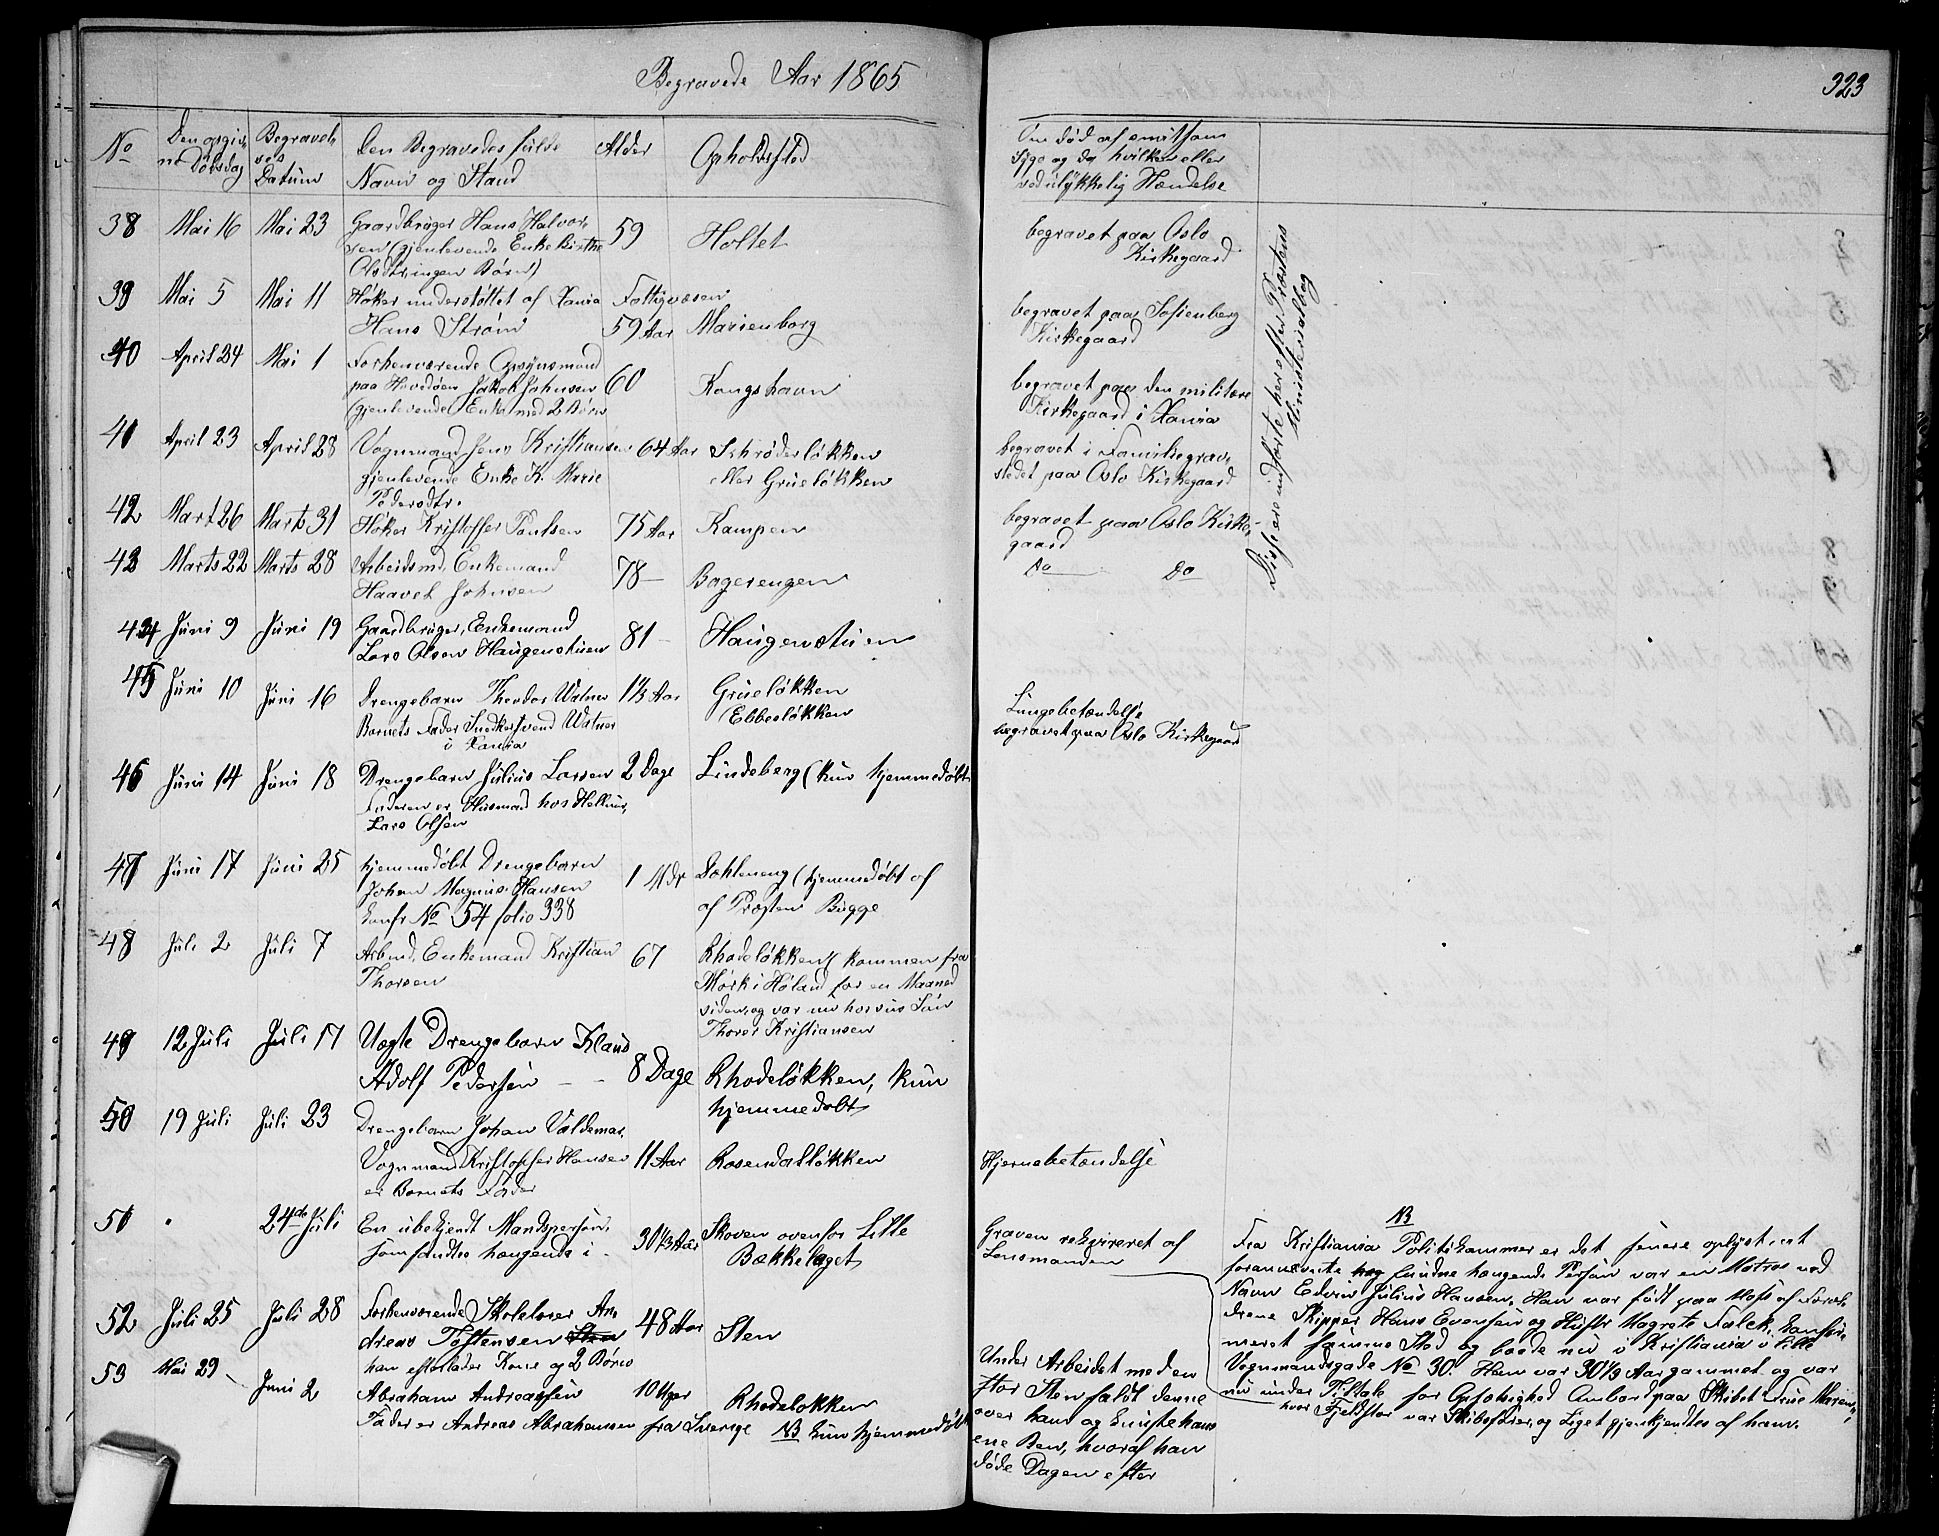 Begravede Aar 1865
323
No
Den opgiv-
ne Dödsdag
Begravel-
ses
Datum
Den Begravedes fulde
Navn og Stand
Alder
Opholdssted
Om död af smitsom
Syge og da hvilken eller
ved ulykkelig Hændelse
38 Mai 16 Mai 23 Gaardbruger Hans Halvor-
sen (gjenlevende Enke Birthe
Olsdtr, ingen Börn)
59 Holtet
begravet paa Oslo
Kirkegaard
39 Mai 5 Mai 11 Höker understöttet af Xania Fattigvæsen
Hans Ström 59 Aar Marienborg
begravet paa Sofienberg
Kirkegaard
40 April 24 Mai 1 Forhenværende Opsynsmand
paa Hovedöen Jakob Johnsen
(gjenlevende Enke med 2 Börn
60 Kongshavn
begravet paa den militære
Kirkegaard i Xania
41 April 23 April 28 Vognmand Jens Kristiansen
gjenlevende Enke K. Marie
Pedersdtr.
64 Aar Schröderlökken
eller Gruelökken
begravet i Familiegrav-
stedet paa Oslo Kirkegaard
42 Mart 26 Marts 31 Höker Kristoffer Paulsen 75 Aar Kampen
begravet paa Oslo Kirke-
gaard
43 Marts 22 Marts 28 Arbeidsmd, Enkemand
Haavel Johnsen
78 — Bagerengen
Do Do
Disse ere indförte her efter Præstens
Ministerialbog
44 Juni 9 Juni 19 Gaardbruger, Enkemand
Lars Olsen Haugenstuen
81 — Haugenstuen
45 Juni 10 Juni 16 Drengebarn Theodor Watner
Barnets Fader Snedkersvend Watner
i Xania
1½ Aar Gruelökken
(Ebbeslökken
Lungebetændelse
begravet paa Oslo Kirkegaard
46 Juni 14 Juni 18 Drengebarn Julius Larsen
Faderen er Husmand hos Hellum,
Lars Olsen
2 Dage Lindeberg (kun hjemmedöbt
47 Juni 17 Juni 25 hjemmedöbt Drengebarn
Johan Magnus Hansen
konfr No 54 folio 338
1 Mdr Dahleneng (hjemmedöbt af
af Præsten Bugge
48 Juli 2 Juli 7 Arbmd, Enkemand Kristian
Thorsen
67 Rhodelökken (kommen fra
Mörk i Höland for en Maaned
siden, og var nu hos sin Sön
Thorer Kristiansen
49 12 Juli Juli 17 Uægte Drengebarn Klaus
Adolf Pedersen — -
8 Dage Rhodelökken, kun
hjemmedöbt
50 19 Juli Juli 23 Drengebarn Johan Valdemar,
Vognmand Kristoffer Hansen
er Barnets Fader
11 Aar Rosendallökken
Hjernebetændelse
51 24de Juli En ubekjendt Mandsperson,
som fandtes hængende i -
30⅓ Aar Skoven ovenfor Lille
Bækkelaget
Graven rekvireret af
Lensmanden
NB
Fra Kristiania Politikammer er det senere oplyst, at
forannævnte fundne hængende Person var en Matros ved
Navn Edvin Julius Hansen. Han var födt paa Moss af Foræl-
drene Skipper Hans Evensen og Hustr Magrete Falck, konfir-
meret samme Sted og boede nu i Kristiania i Lille
Vognmandsgade No 30. Han var 30⅓ Aar gammel og var
nu under Tiltale for Opsætsighed Ombord paa Skibet Frue Maren,
hvor Fjeldstor var Skibsförer, og Liget gjenkjendtes af ham.
52 Juli 25 Juli 28 Forhenværende Skolelærer An-
dreas Tostensen
han efterlader Kone og 2 Börn
48 Aar Sten
Under Arbeidet med en
stor Sten faldt denne
over ham og knuste hans
ene Ben, hvoraf han
döde Dagen efter
53 Mai 29 Juni 2 Abraham Andreassen 10 Uger Rhodelökken
Fader er Andreas Abrahamsen fra Sverige NB kun hjemmedöbt